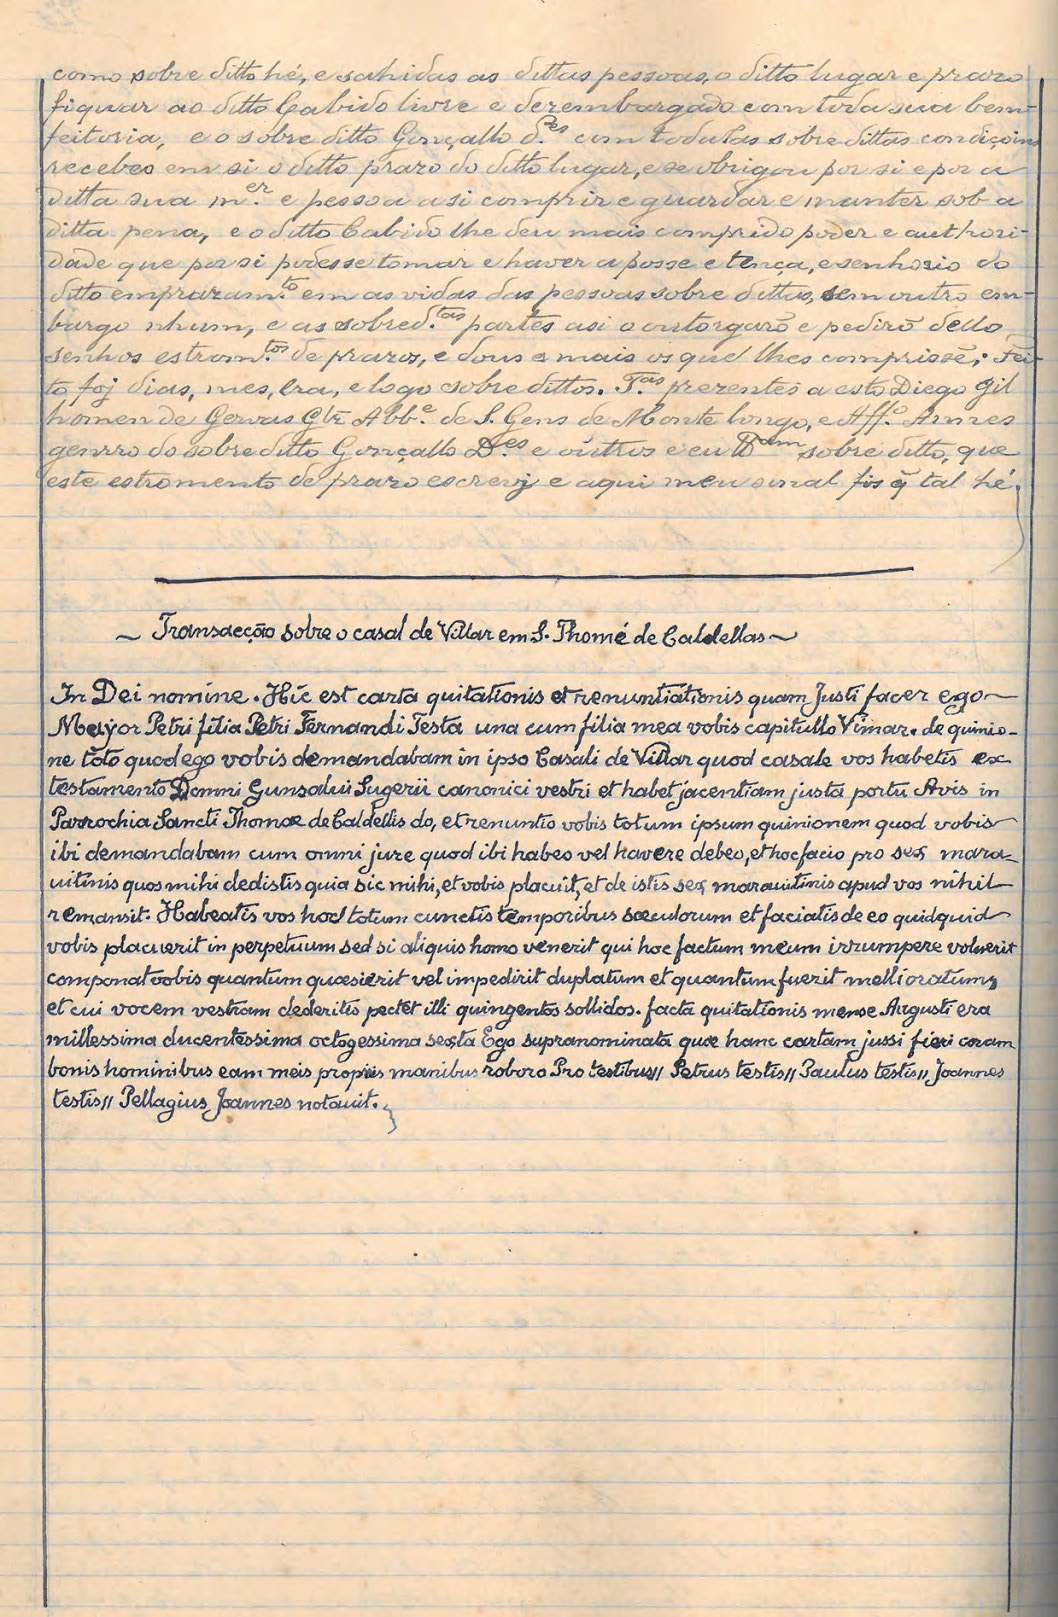 como sobre ditto hé, e sahidas as dittas pessoas, o ditto lugar e prazo
fiquar ao ditto Cabido livre e dezembargado com toda sua bem-
feitoria, e o sobre ditto Gonçallo d.es com todalas sobre dittas condiçoins
recebeo em si o ditto prazo do ditto lugar, e se obrigou por si e por a
ditta sua m.er e pessoa asi comprir e guardar e manter sob a
ditta pena, e o ditto Cabido lhe deu mais comprido poder e authori-
dade que por si podesse tomar e haver a posse e tença, e senhorio do
ditto emprazam.to em as vidas das pessoas sobre dittas, sem outro em-
bargo nhum, e as sobred.tas partes asi o outorgarõ e pedirõ dello
senhos estrom.tos de prazos, e dous e mais os que lhes comprissẽ; Fei-
to foj dias, mes, Era, e logo sobre dittos. T.as prezentes a esto Diego Gil
homen de Gervas Glz Abb.e de S. Gens de Monte longo, e Aff.o Annes
genrro do sobre ditto Gonçallo D.es e outros e eu sobre ditto, que
este estromento de prazo escrevj e aqui meu sinal fis q̃ tal hé.
~ Transacção sobre o casal de Villar em S. Thomé de Caldellas ~
In Dei nomine. Hic est carta quitationis et renuntiationis quam Justi facer ego
Mayor Petri filia Petri Fernandi Testa una cum filia mea vobis capitullo Vimar. de quinio-
ne toto quod ego vobis demandabam in ipso Casali de Villar quod casale vos habetis ex
testamento Domni Gunsalvi Sugerii canonici vestri et habet jacentiam justa portũ Avis in
Parrochia Sancti Thomae de Caldellis do, et renuntio vobis totum ipsum quinionem quod vobis
ibi demandabam cum omni jure quod ibi habeo vel havere debeo, et hoc facio pro sex mara-
uitinis quos mihi dedistis quia sic mihi, et vobis placuit, et de istis sex marauitinis apud vos nihil
remansit. Habeatis vos hoc totum cunctis temporibus sæculorum et faciatis de eo quidquid
vobis placuerit in perpetuum sed si aliquis homo venerit qui hoc factum meum irrumpere voluerit
componat vobis quantum quæsierit vel impedirit duplatum et quantum fuerit mellioratum,
et cui vocem vestram dederitis pectet illi quingentos sollidos. facta quitationis mense Augusti era
millessima ducentessima octogessima sexta Ego supranominata quæ hanc cartam jussi fieri coram
bonis hominibus eam meis propriis manibus roboro Pro testibus// Petrus testis// Paulus testis// Joannes
testis// Pellagius Joannes notauit.